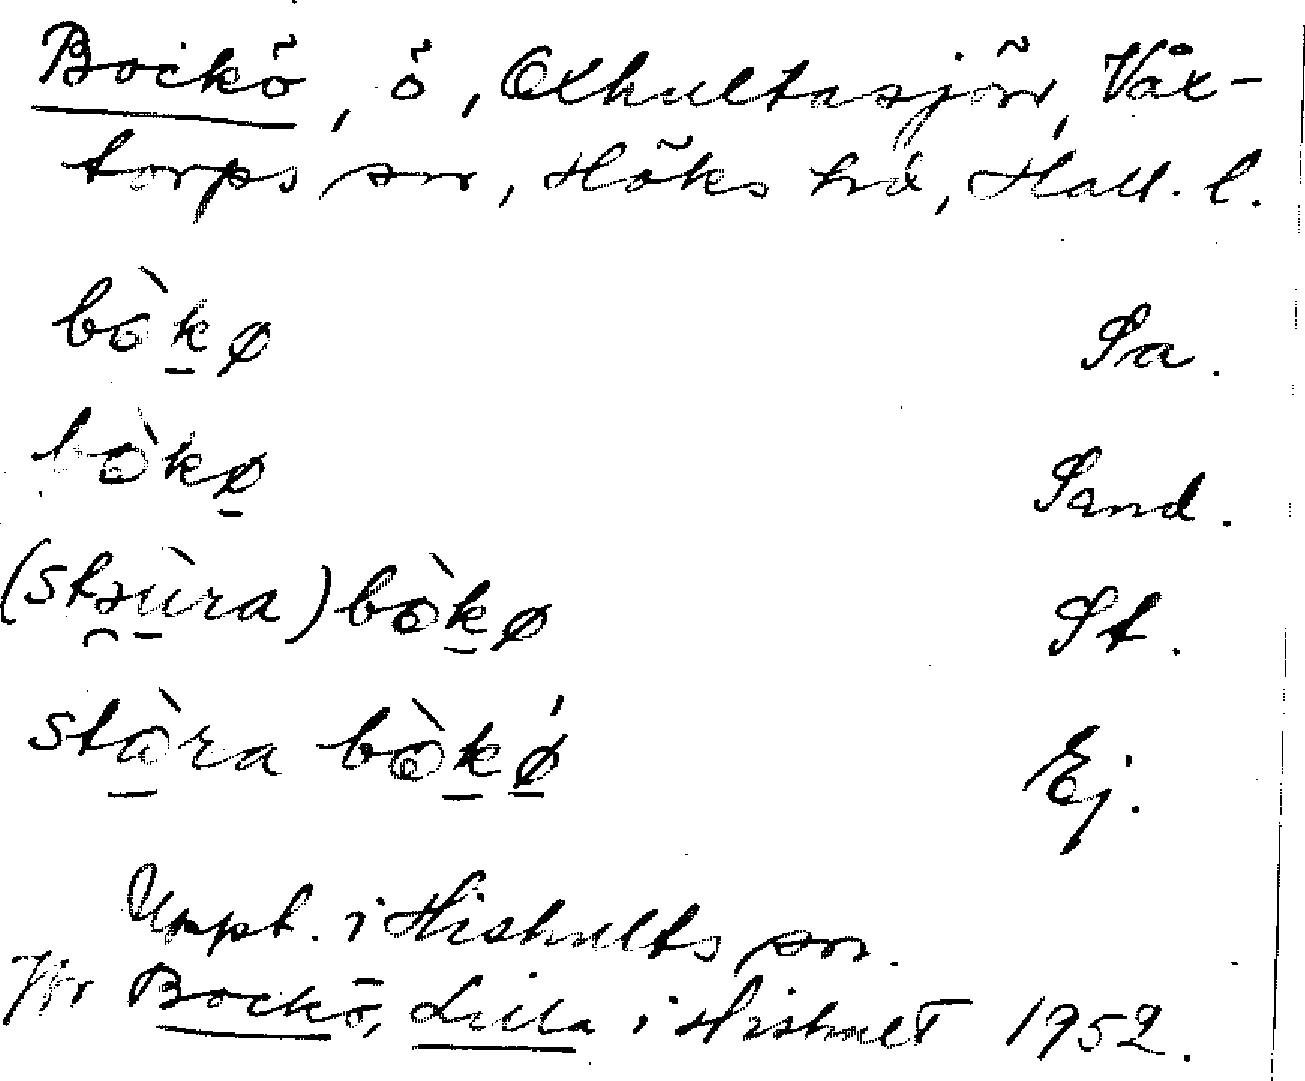 Bockö, ö, Oxhultasjön, Våx-
torps sn, Höks hd, Hall. l.
bòkø Sa.
bòkø Sand.
(stsùra) bòkø St.
stàra bòkǿ Ej.
Uppt. i Hishults sn.
Jfr Bockö, Lilla i Hishult 1952.